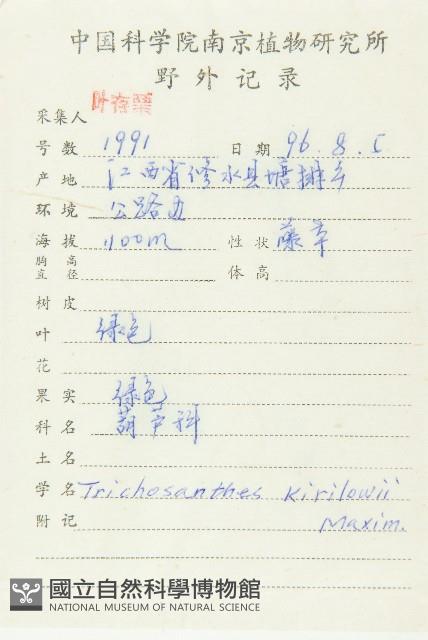 中国科学院南京植物研究所
野外记录
采集人 叶存粟
号数 1991 日期 96.8.5
产地 江西省修水县塘排乡
环境 公路边
海拔 1100m 性状 藤草
胸高直径 体高
树皮
叶 绿色
花
果实 绿色
科名 葫芦科
土名
学名 Trichosanthes Kirilowii
附记 Maxim.
國立自然科學博物館
NATIONAL MUSEUM OF NATURAL SCIENCE